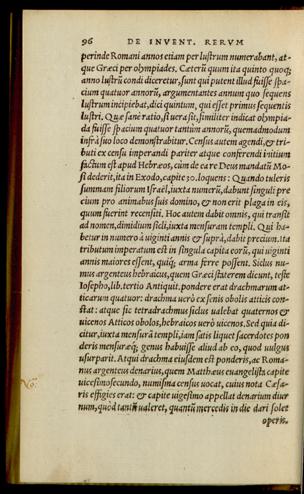 96 DE INVENT. RERVM
perinde Romani annos etiam per lustrum numerabant, at-
que Græci per olympiades. Cæterũ quum ita quinto quoq;
anno lustrũ condi diceretur, sunt qui putent illud fuisse spa-
cium quatuor annorũ, argumentantes annum quo sequens
lustrum incipiebat, dici quintum, qui esset primus sequentis
lustri. Quæ sanè ratio, si uera sit, similiter indicat olympia-
da fuisse spacium quatuor tantùm annorũ, quemadmodum
infrà suo loco demonstrabitur. Census autem agendi, & tri-
buti ex censu imperandi pariter atque conferendi initium
factũ est apud Hebræos, cùm de ea re Deus mandatũ Mo-
si dederit, ita in Exodo, capite 30. loquens: Quando tuleris
summam filiorum Israël, iuxta numerũ, dabunt singuli pre
cium pro animabus suis domino, & non erit plaga in eis,
quum fuerint recensiti. Hoc autem dabit omnis, qui transit
ad nomen, dimidium sicli, iuxta mensuram templi. Qui ha-
betur in numero à uiginti annis & suprà, dabit precium. Ita
tributum imperatum est in singula capita eorũ, qui uiginti
annis maiores essent, quiq; arma ferre possent. Siclus nu-
mus argenteus hebraicus, quem Græci staterem dicunt, teste
Iosepho, lib. tertio Antiquit. pondere erat drachmarum at-
ticarum quatuor: drachma uerò ex senis obolis atticis con-
stat: atque sic tetradrachmus siclus ualebat quaternos &
uicenos Atticos obolos, hebraicos uerò uicenos. Sed quia di-
citur, iuxta mensurã templi, iam satis liquet sacerdotes pon
deris mensuræq; genus habuisse aliud ab eo, quod uulgus
usurparit. Atqui drachma eiusdem est ponderis, ac Roma-
nus argenteus denarius, quem Matthæus euangelista capite
uicesimosecundo, numisma census uocat, cuius nota Cæsa-
ris effigies erat: & capite uigesimo appellat denarium diur
num, quòd tantũ ualeret, quantũ mercedis in die dari solet
operis.